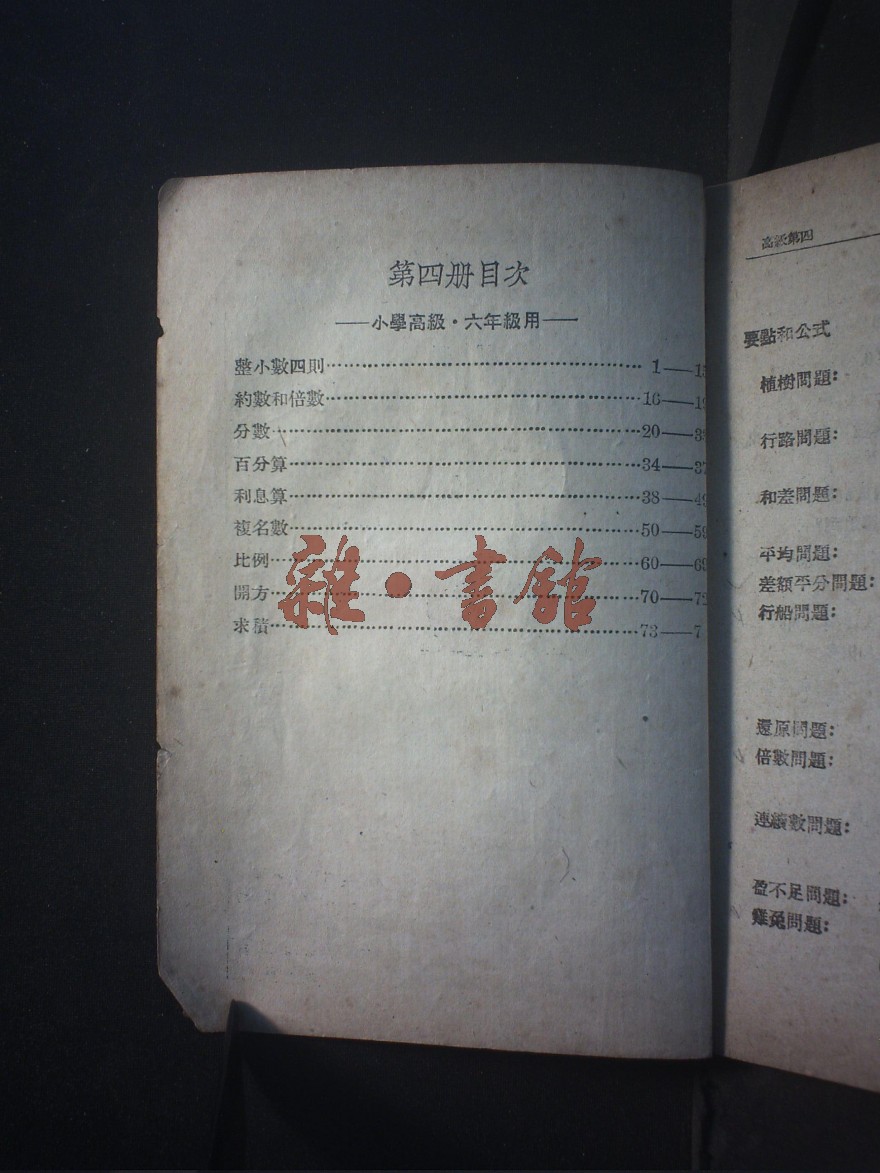 第四册目次
——小學高級·六年級用——
整小數四則……1——1
約數和倍數……16——1
分數……20——3
百分算……34——37
利息算……38——49
複名數……50——59
比例……60——69
開方……70——72
求積……73——7
雜·書館
高級第四
要點和公式
植樹問題:
行路問題:
和差問題:
平均問題:
差額平分問題:
行船問題:
還原問題:
倍數問題:
連續數問題:
盈不足問題:
雞兔問題: